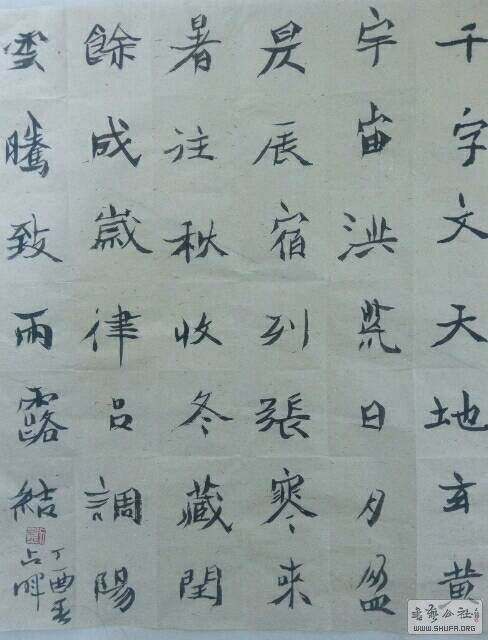 千字文天地玄黄
宇宙洪荒日月盈
昃辰宿列張寒来
暑往秋收冬藏閏
餘成歲律吕調陽
雲騰致雨露結
丁酉
书艺公社
WWW.SHUFA.ORG